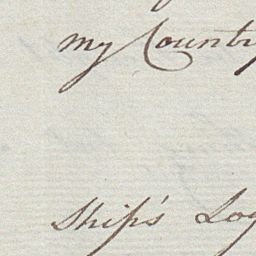 my Country
Ship's Log